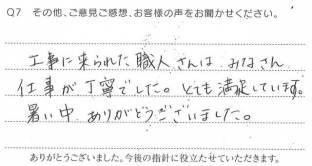 Q7 その他、ご意見ご感想、お客様の声をお聞かせください。
工事に来られた職人さんは みなさん
仕事が丁寧でした。とても満足しています。
暑い中 ありがとうございました。
ありがとうございました。今後の指針に役立たせていただきます。